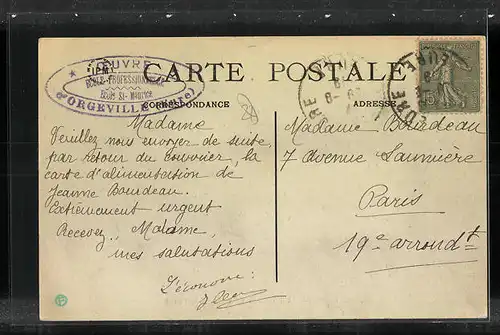 ŒUVRE
ÉCOLE PROFESSIONNELLE
École St-Maurice
d'ORGEVILLE (Eure)
CARTE POSTALE
CORRESPONDANCE
ADRESSE
EURE
EURE
15
Madame
Veuillez nous envoyer de suite,
par retour du courrier, la
carte d'alimentation de
Jeanne Bourdeau.
Extrêmement urgent
Recevez, Madame,
mes salutations
Madame Bourdeau
7 avenue Laumière
Paris
19e arrondt